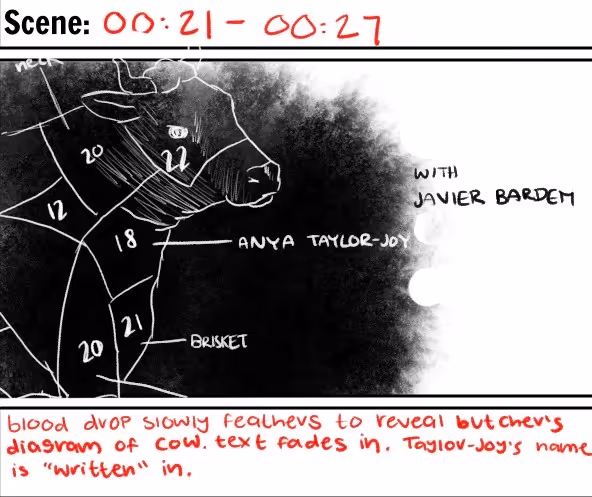 Scene: 00:21 - 00:27
neck
20
22
WITH
JAVIER BARDEM
12
18
ANYA TAYLOR-JOY
21
BRISKET
20
blood drop slowly feathers to reveal butcher's
diagram of cow. text fades in. Taylor-Joy's name
is "written" in.